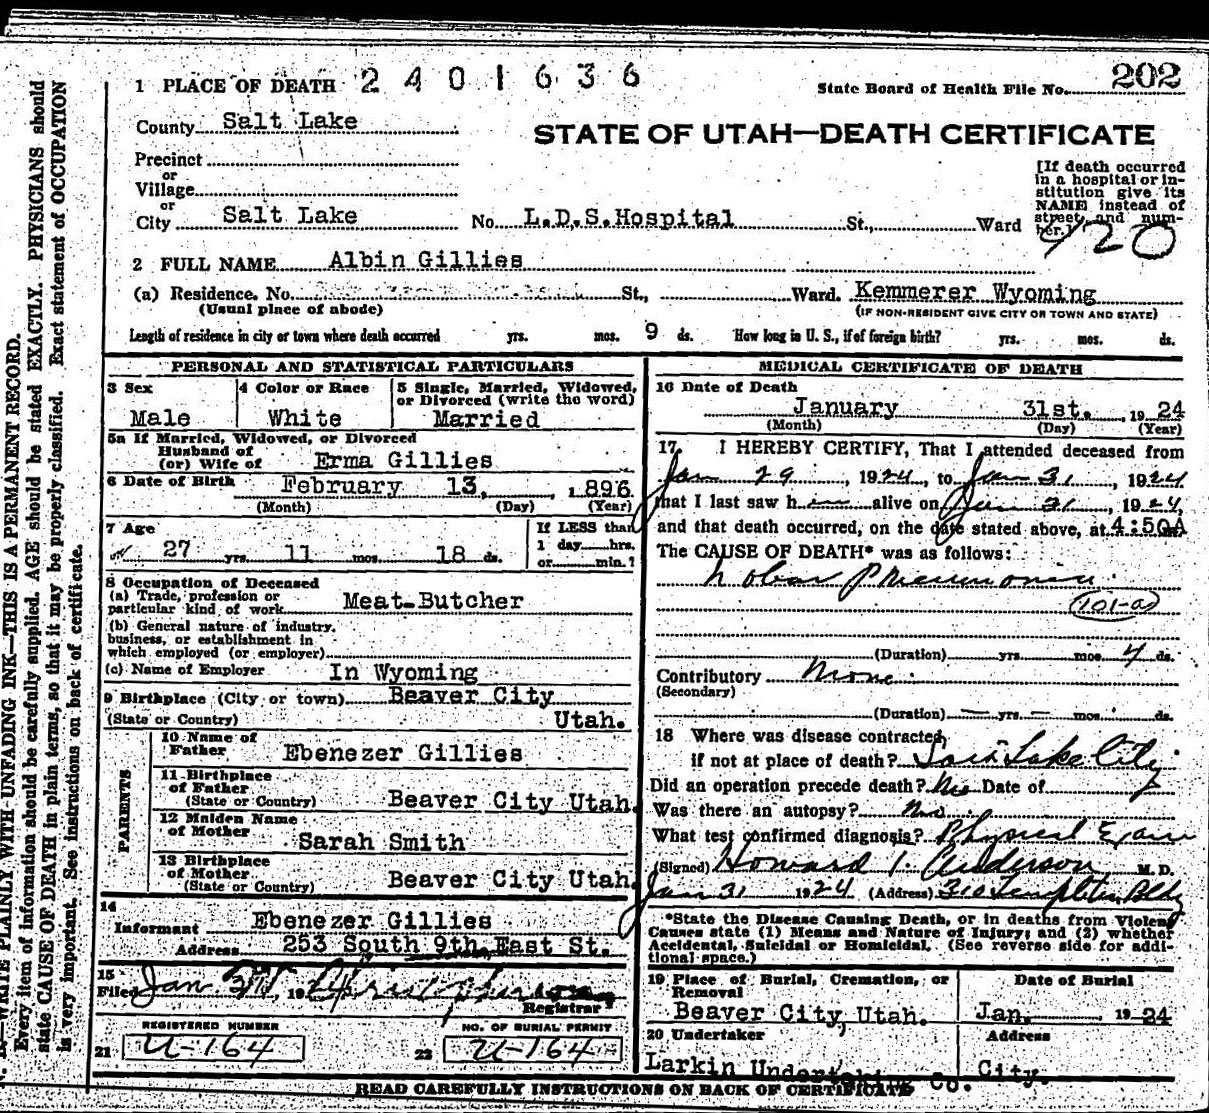 1 PLACE OF DEATH 2401636
State Board of Health File No. 202
County Salt Lake
STATE OF UTAH—DEATH CERTIFICATE
Precinct
or
Village
or
City Salt Lake No. L.D.S. Hospital St., Ward
[If death occurred
in a hospital or in-
stitution give its
NAME instead of
street, and num-
ber.]
920
2 FULL NAME Albin Gillies
(a) Residence. No. St., Ward. Kemmerer Wyoming
(Usual place of abode) (IF NON-RESIDENT GIVE CITY OR TOWN AND STATE)
Length of residence in city or town where death occurred yrs. mos. 9 ds. How long in U. S., if of foreign birth? yrs. mos. ds.
PERSONAL AND STATISTICAL PARTICULARS
3 Sex
Male
4 Color or Race
White
5 Single, Married, Widowed,
or Divorced (write the word)
Married
5a If Married, Widowed, or Divorced
Husband of
(or) Wife of Erma Gillies
6 Date of Birth February 13, 1896
(Month) (Day) (Year)
7 Age
27 yrs. 11 mos. 18 ds.
If LESS than
1 day hrs.
or min.?
8 Occupation of Deceased
(a) Trade, profession or
particular kind of work Meat-Butcher
(b) General nature of industry,
business, or establishment in
which employed (or employer)
(c) Name of Employer In Wyoming
9 Birthplace (City or town) Beaver City
(State or Country) Utah.
PARENTS
10 Name of
Father Ebenezer Gillies
11 Birthplace
of Father
(State or Country) Beaver City Utah.
12 Maiden Name
of Mother Sarah Smith
13 Birthplace
of Mother
(State or Country) Beaver City Utah.
14
Informant Ebenezer Gillies
Address 253 South 9th East St.
15
Filed Jan. 31, 1924
Registrar
REGISTERED NUMBER
21 U-164
NO. OF BURIAL PERMIT
22 U-164
MEDICAL CERTIFICATE OF DEATH
16 Date of Death
January 31st. 1924
(Month) (Day) (Year)
17 I HEREBY CERTIFY, That I attended deceased from
Jan 29, 1924, to Jan 31, 1924
that I last saw him alive on Jan 31, 1924,
and that death occurred, on the date stated above, at 4:50A m.
The CAUSE OF DEATH* was as follows:
Lobar Pneumonia
101-a
(Duration) yrs. mos. 4 ds.
Contributory None.
(Secondary)
(Duration) — yrs. — mos. ds.
18 Where was disease contracted,
if not at place of death? Salt Lake City
Did an operation precede death? No Date of
Was there an autopsy? No
What test confirmed diagnosis? Physical Exam
(Signed) Howard I. Anderson, M. D.
Jan 31 1924 (Address) 310 Templeton Bldg
*State the Disease Causing Death, or in deaths from Violent
Causes state (1) Means and Nature of Injury; and (2) whether
Accidental, Suicidal or Homicidal. (See reverse side for addi-
tional space.)
19 Place of Burial, Cremation, or
Removal
Beaver City, Utah.
Date of Burial
Jan. 1924
20 Undertaker
Larkin Undertaking Co.
Address
City.
READ CAREFULLY INSTRUCTIONS ON BACK OF CERTIFICATE
N. B.—WRITE PLAINLY WITH UNFADING INK—THIS IS A PERMANENT RECORD.
Every item of information should be carefully supplied. AGE should be stated EXACTLY. PHYSICIANS should
state CAUSE OF DEATH in plain terms, so that it may be properly classified. Exact statement of OCCUPATION
is very important. See instructions on back of certificate.